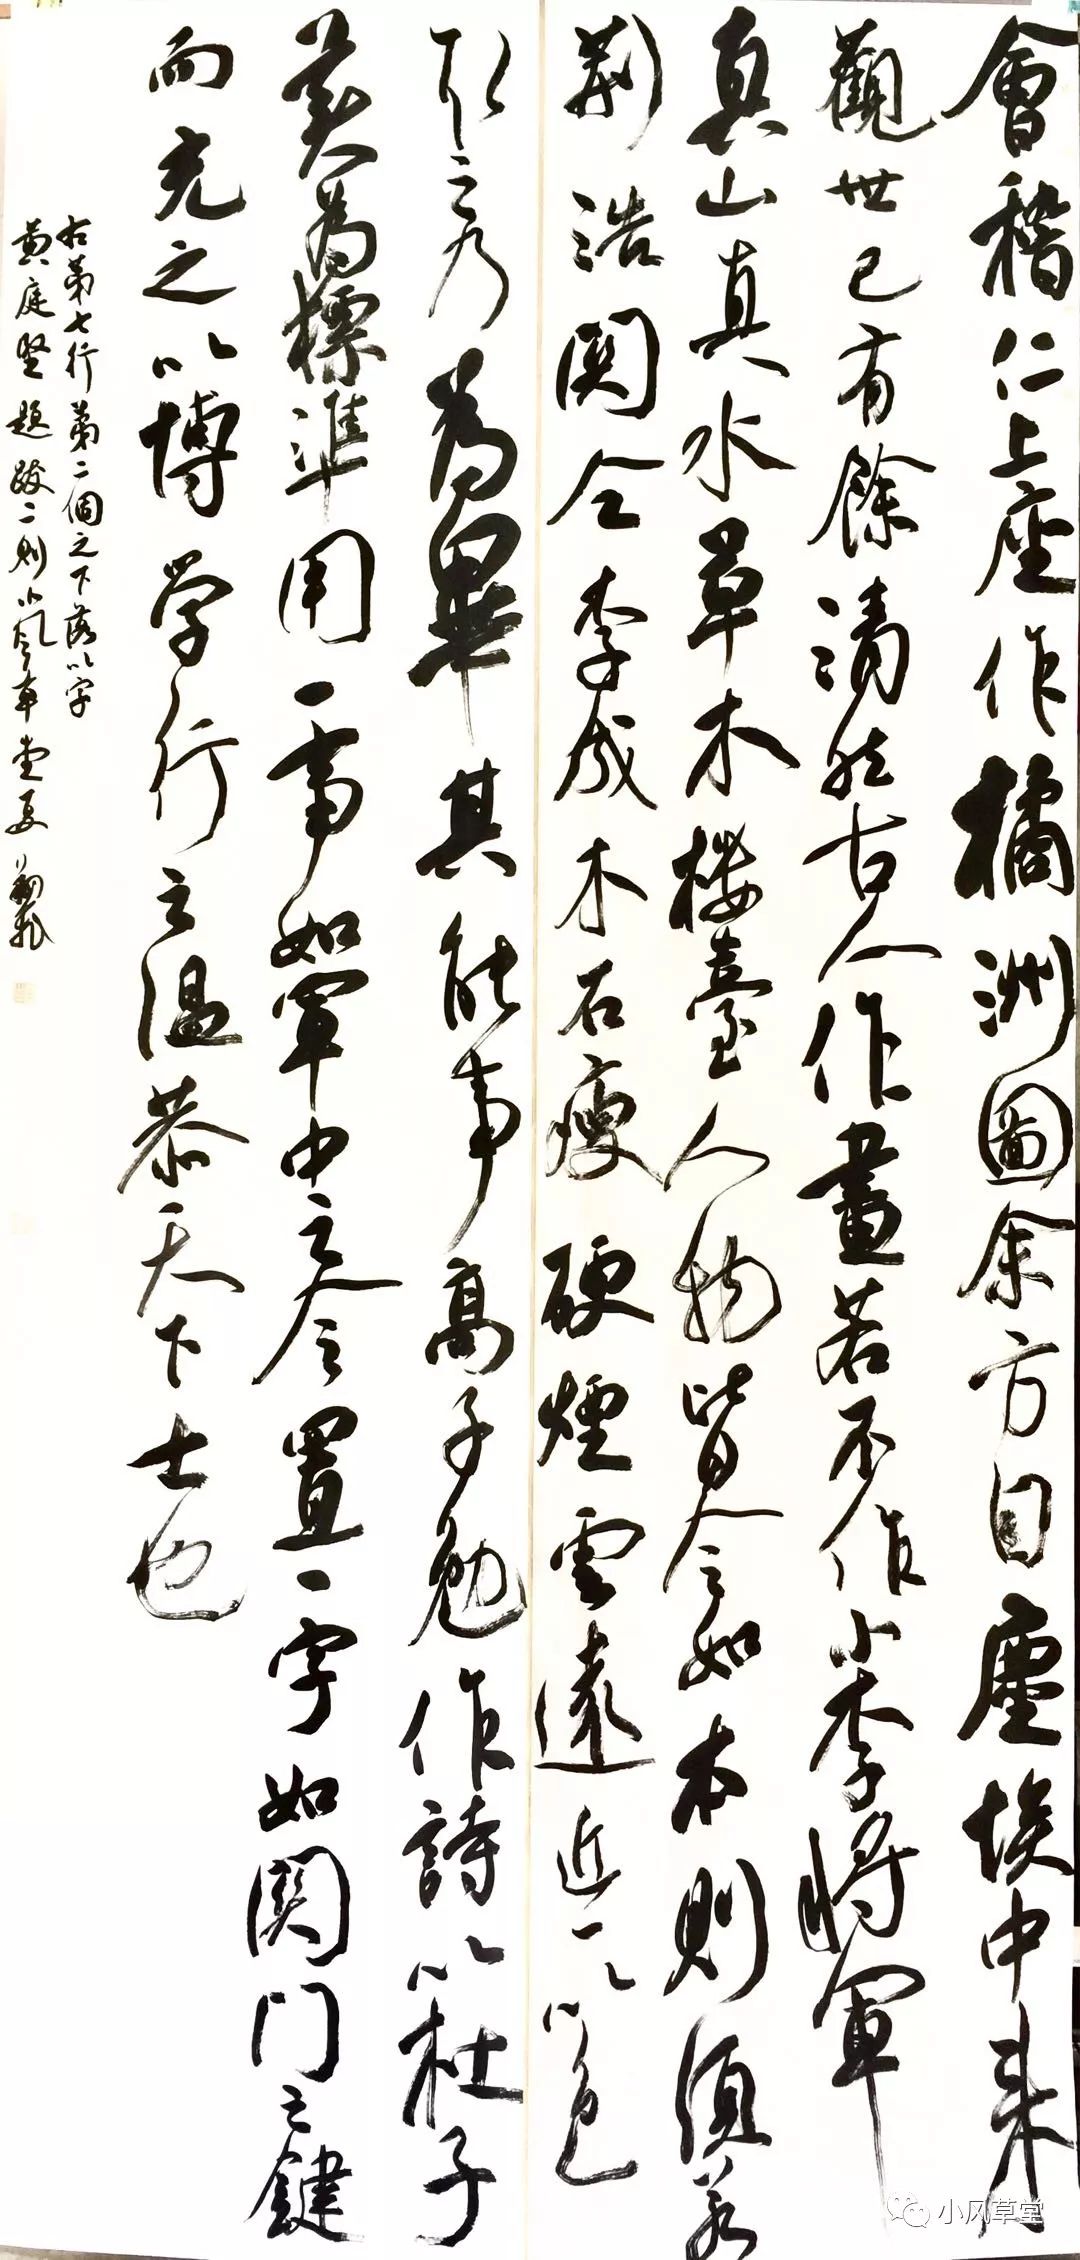 會稽仁上座作橘洲圖余方自塵埃中来
觀世已有餘清然古人作畫若不作小李將軍
真山真水草木樓臺人物皆令如本則須若
荊浩關仝李成木石瘦硬煙雲遠近一以色
取之乃為畢其能事高子勉作詩以杜子
美為標準用一事如軍中之令置一字如關門之鍵
而充之以博學行之温恭天下士也
右第七行第二個之下落以字
黄庭堅題跋二則小風草堂
小风草堂